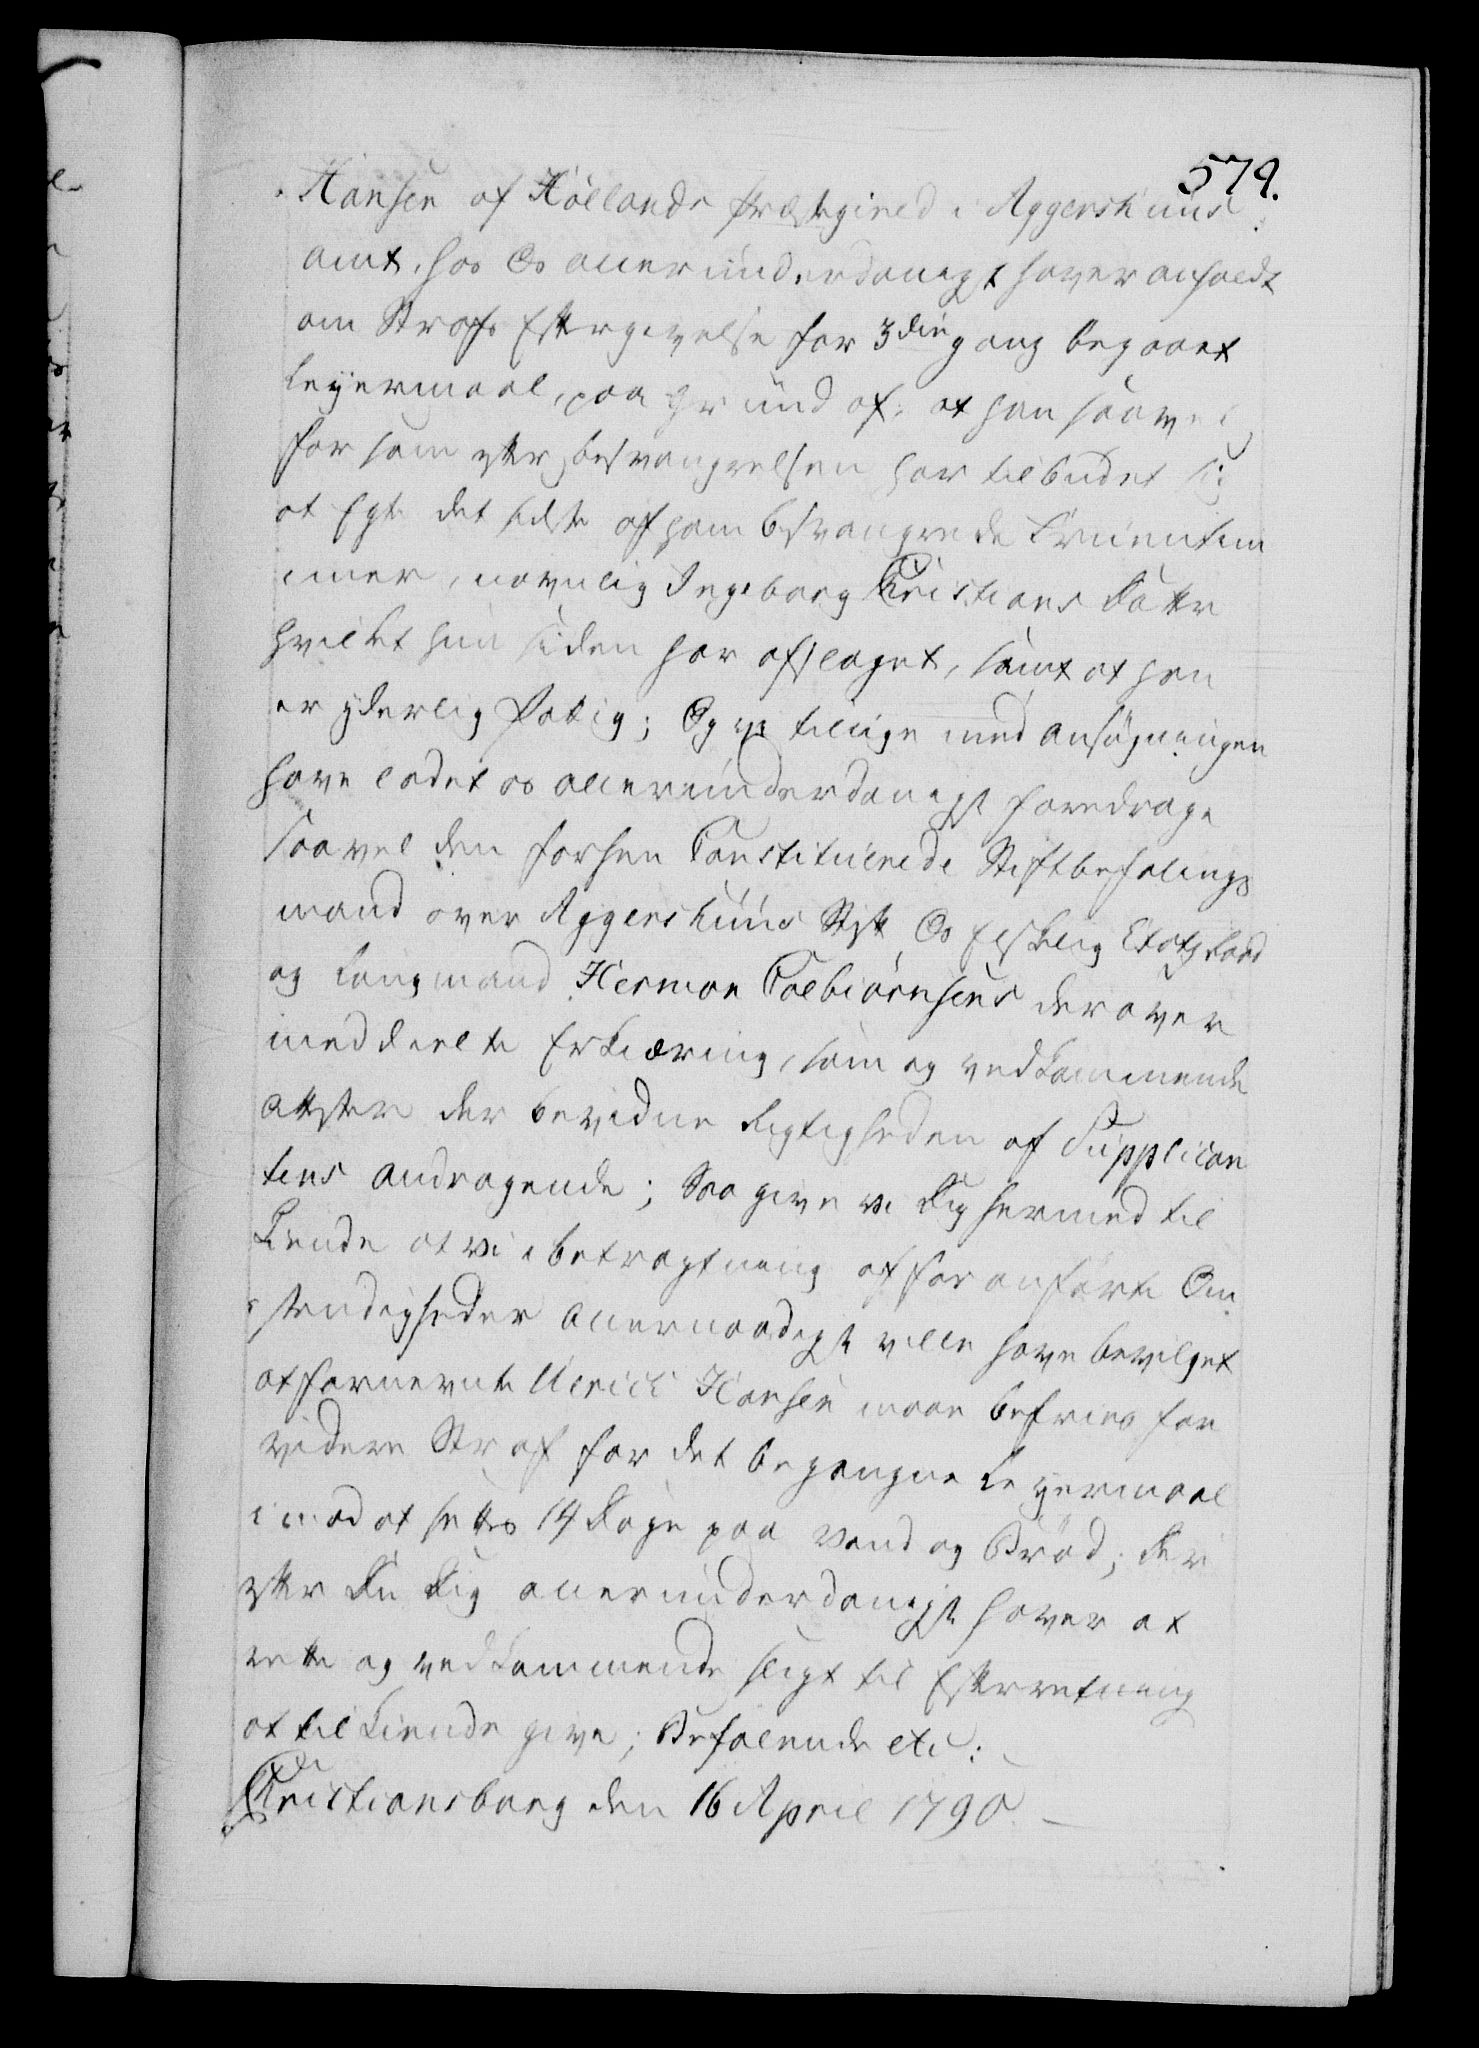 579.
Hansen af Hølands Præstegield i Aggershuus
amt, hos Os allerunderdanigst haver anholdt
om Strafs Eftergivelse for 3die gang begaaet
Leyermaal, paa Grund af, at han saavel
for som efter besvangrelsen har tilbudet sig
at Egte det sidste af ham besvangrede Fruentim
mer, navnlig Ingeborg Christians Datter
hvilket hun siden har afslaget, samt at han
er yderlig fattig; Og vi tillige med ansøgningen
have ladet os allerunderdanigst foredrage
saavel den forhen Constituerede Stiftbefalings
mand over Aggershuus Stift Os Elskelig Etatz Raad
og Laugmand Herman Colbiørnsens derover
meddeelte Erklæring, som og vedkommende
attester der bevidne Rigtigheden af Supplican
tens andragende; Saa give vi Dig hermed til
Kiende at vi i betragtning af for anførte Om
stendigheder allernaadigst ville have bevilget
at fornevnte Ulrich Hansen maae befries for
videre Straf for det begangne Leyermaal
imod at settes 14 Dage paa Vand og Brød; Der
efter Du Dig allerunderdanigst haver at
rette og vedkommende sligt til Efterretning
at tilkiende give; Befalende etc:
Christiansborg den 16 April 1790.